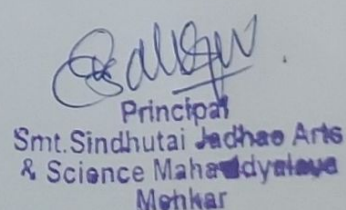 Principal
Smt.Sindhutai Jadhao Arts
& Science Mahavidyalaya
Mehkar